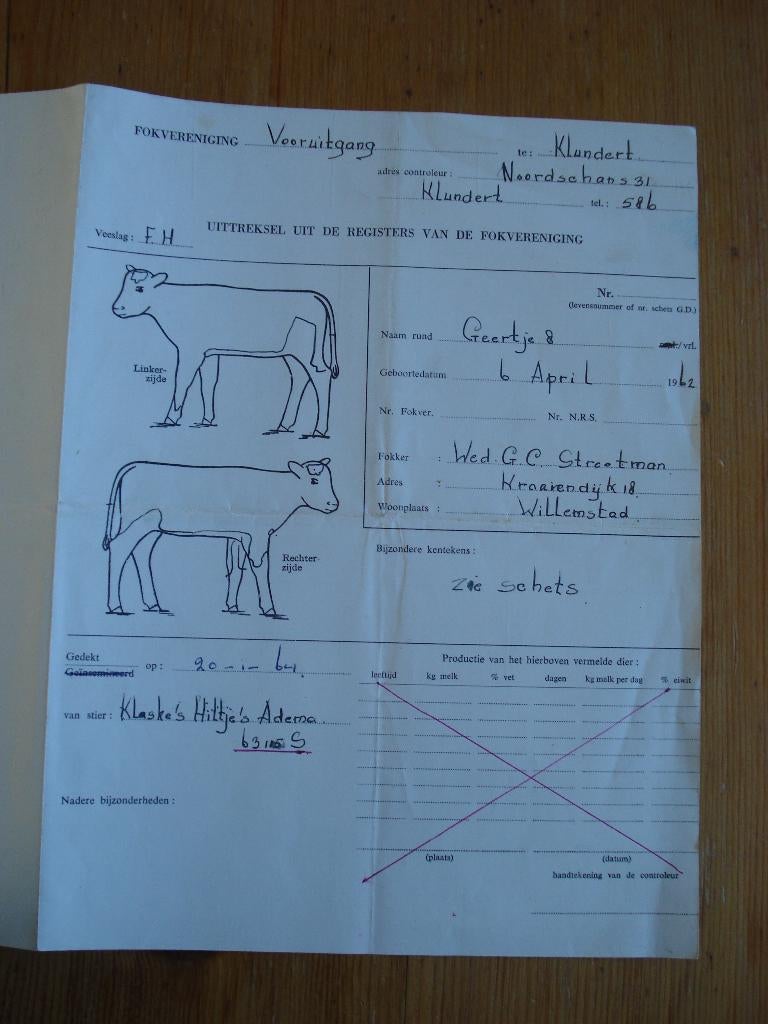 FOKVERENIGING Vooruitgang te: Klundert
adres controleur: Noordschans 31
Klundert tel.: 586
Veeslag: F.H
UITTREKSEL UIT DE REGISTERS VAN DE FOKVERENIGING
Nr.
(levensnummer of nr. schets G.D.)
Naam rund Geertje 8 /vrl.
Geboortedatum 6 April 1962
Nr. Fokver. Nr. N.R.S.
Fokker : Wed. G.C. Streetman
Adres : Kraaiendijk 18
Woonplaats : Willemstad
Linker-
zijde
Rechter-
zijde
Bijzondere kentekens:
zie schets
Gedekt
Geïnsemineerd op: 20-1-64.
van stier: Klaske's Hiltje's Adema
S
Nadere bijzonderheden:
Productie van het hierboven vermelde dier:
leeftijd kg melk % vet dagen kg melk per dag % eiwit
(plaats) (datum)
handtekening van de controleur